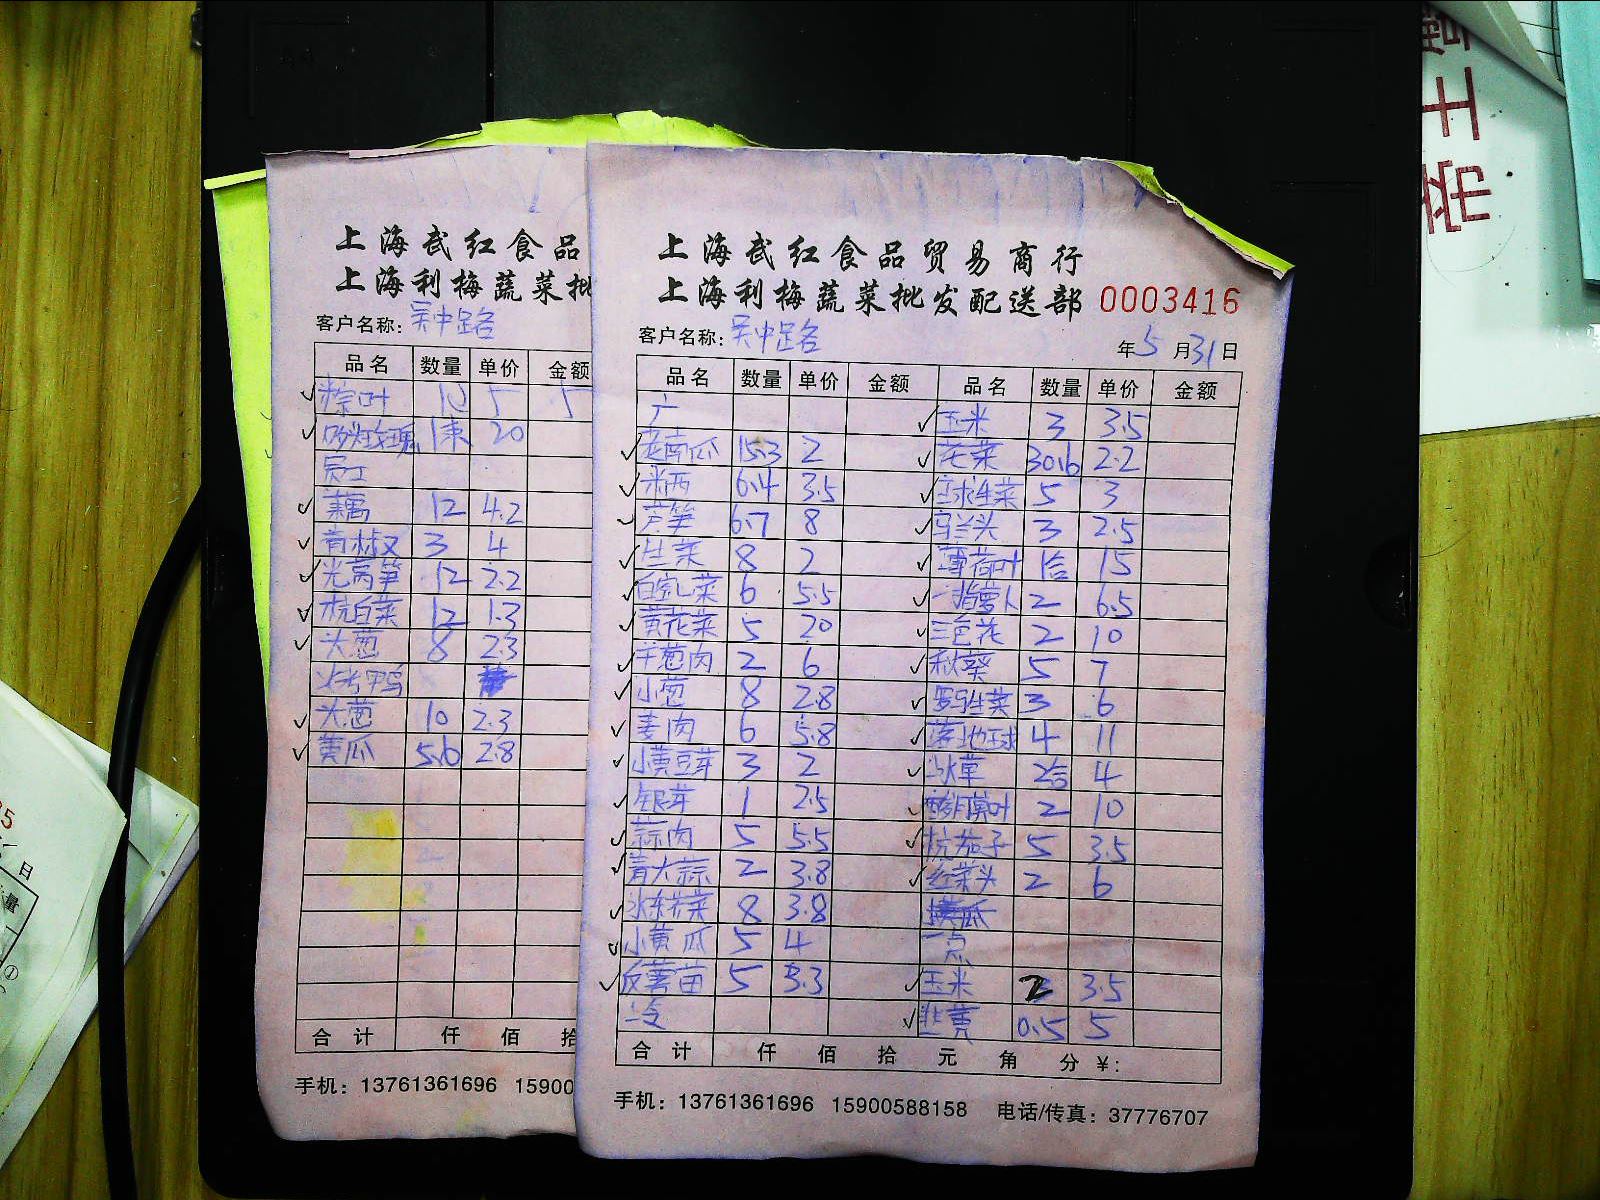 上海武红食品
上海利梅蔬菜批
客户名称: 吴中路
品名 数量 单价 金额
粽叶 10 5 5
玫瑰 1束 20
员工
藕 12 4.2
青椒 3 4
光莴笋 12 2.2
杭白菜 12 1.3
大葱 8 2.3
烤鸭
大葱 10 2.3
黄瓜 5.6 2.8
合计 仟 佰 拾
手机: 13761361696 15900
上海武红食品贸易商行
上海利梅蔬菜批发配送部 0003416
客户名称: 吴中路 年5月31日
品名 数量 单价 金额 品名 数量 单价 金额
广 玉米 3 3.5
老南瓜 15.3 2 花菜 30.6 2.2
米西 6.4 3.5 球生菜 5 3
芦笋 6.7 8 乌兰头 3 2.5
生菜 8 2 薄荷叶 1合 15
白家儿菜 6 5.5 一指萝卜 2 6.5
黄花菜 5 20 三色花 2 10
羊葱肉 2 6 秋葵 5 7
小葱 8 2.8 罗马生菜 3 6
姜肉 6 5.8 落地球 4 11
小黄豆芽 3 2 冰草 2合 4
银芽 1 2.5 酸膜叶 2 10
蒜肉 5 5.5 杭茄子 5 3.5
青大蒜 2 3.8 红菜头 2 6
冰东芥菜 8 3.8
小黄瓜 5 4 点
反薯苗 5 3.3 玉米 2 3.5
冷 韭黄 0.5 5
合计 仟 佰 拾 元 角 分 ¥:
手机: 13761361696 15900588158 电话/传真: 37776707
帝王
日
量